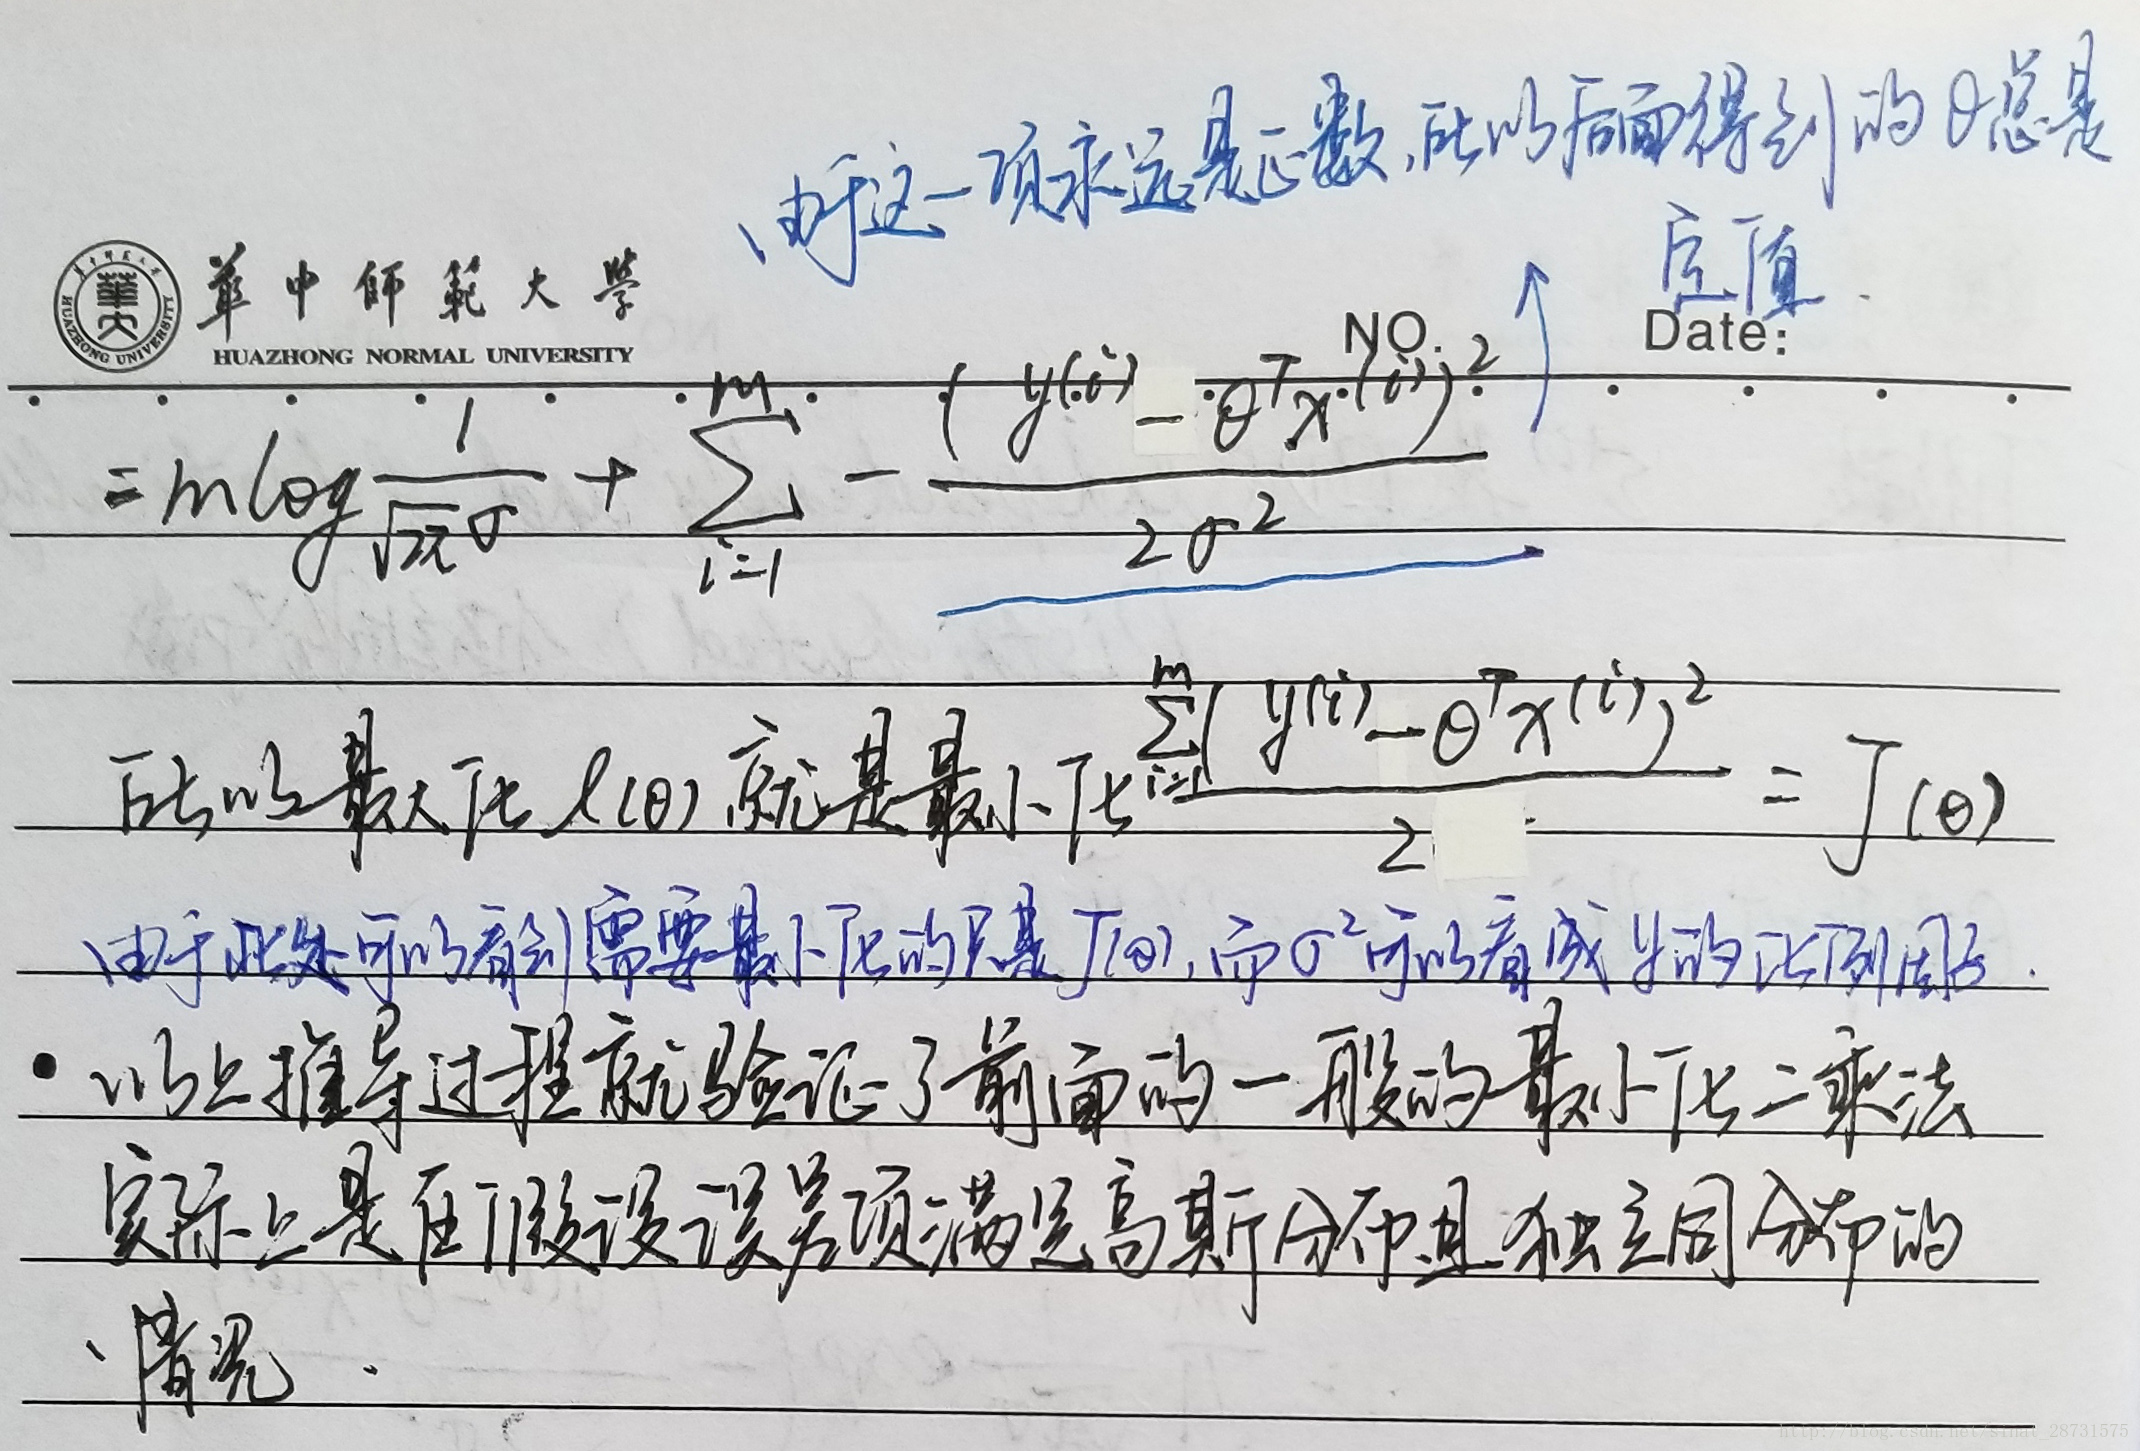 由于这一项永远是正数,所以后面得到的θ总是
定值.
華中師範大學
HUAZHONG NORMAL UNIVERSITY
NO.
Date:
= m log \frac{1}{\sqrt{2π}σ} + \sum_{i=1}^{m} - \frac{(y^{(i)} - θ^T x^{(i)})^2}{2σ^2}
所以最大化 ℓ(θ) 就是最小化 \frac{\sum_{i=1}^{m} (y^{(i)} - θ^T x^{(i)})^2}{2} = J(θ)
由于此处可以看到需要最小化的只是J(θ),而σ^2可以看成y的比例因子.
• 以上推导过程就验证了前面的一般的最小化二乘法
实际上是在假设误差项满足高斯分布且独立同分布的
情况.
http://blog.csdn.net/sinat_28731575